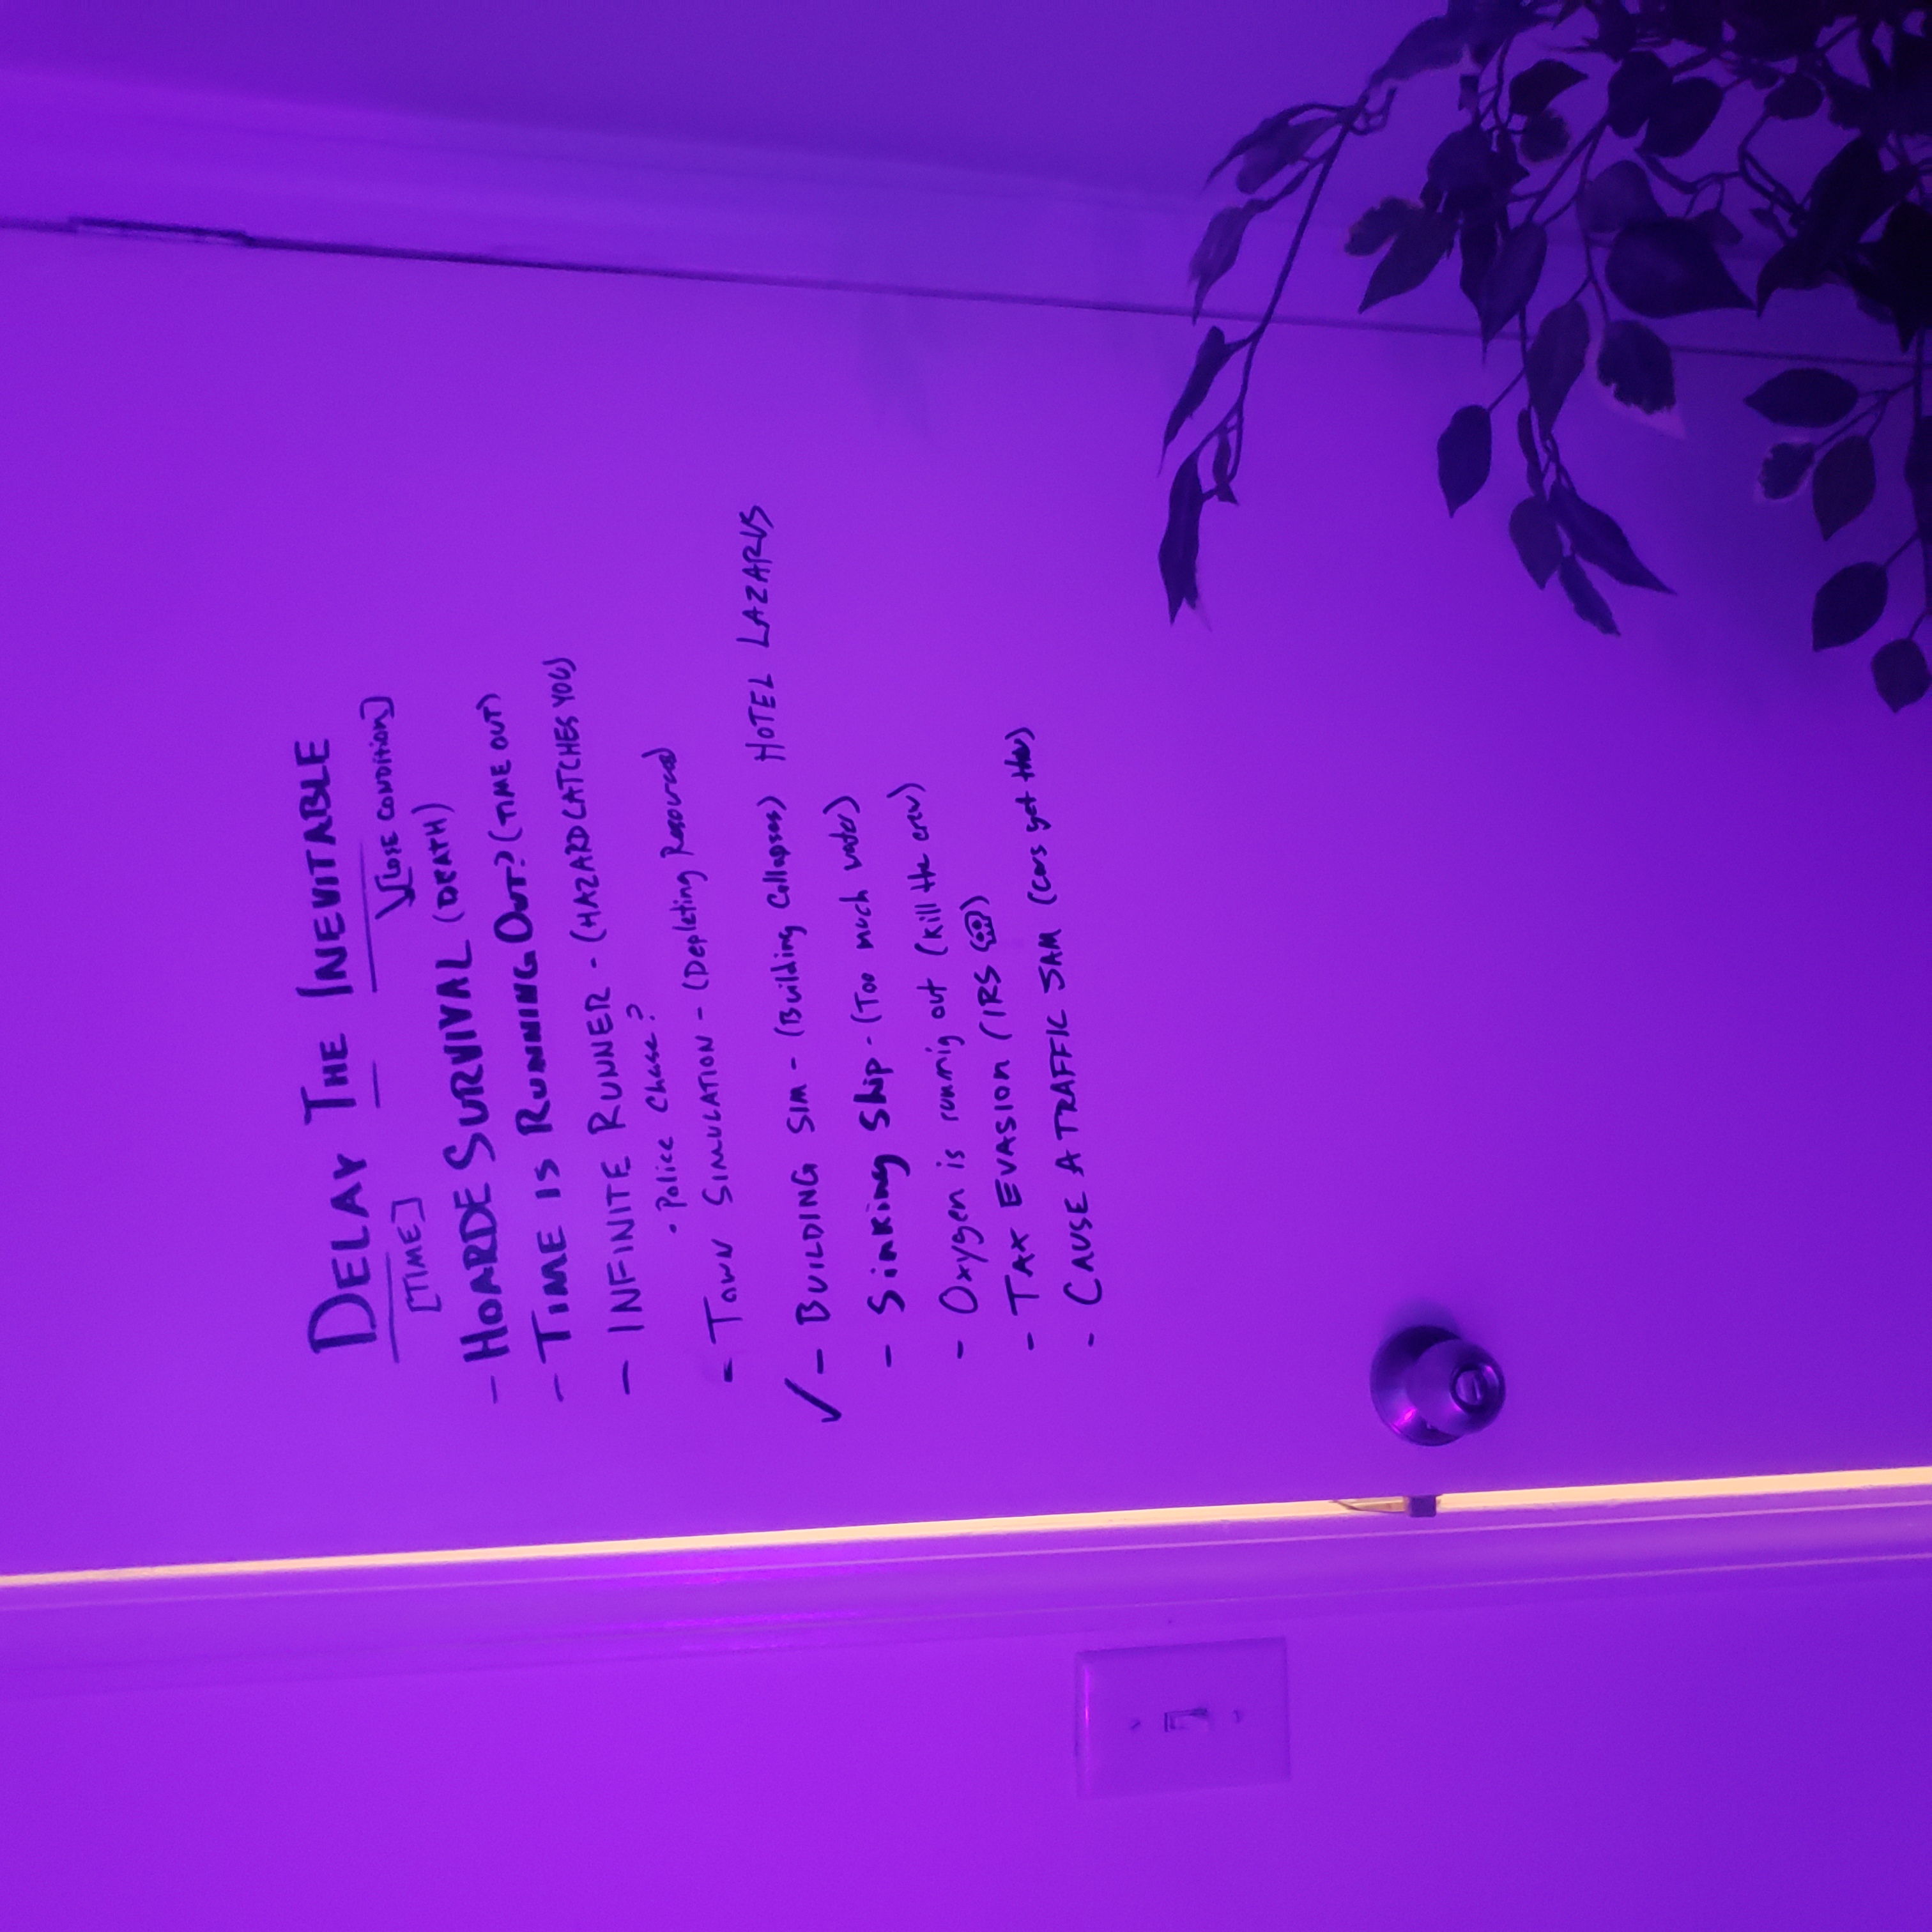 DELAY THE INEVITABLE
[TIME] [LOSE CONDITION]
- HOARDE SURVIVAL (DEATH)
- TIME IS RUNNING OUT? (TIME OUT)
- INFINITE RUNNER - (HAZARD CATCHES YOU)
• Police Chase?
- TOWN SIMULATION - (Depleting Resources)
✓ - BUILDING SIM - (Building Collapses) HOTEL LAZARUS
- Sinking Ship - (Too much water)
- Oxygen is runnig out (kill the crew)
- TAX EVASION (IRS 💀)
- CAUSE A TRAFFIC JAM (Cars get thru)